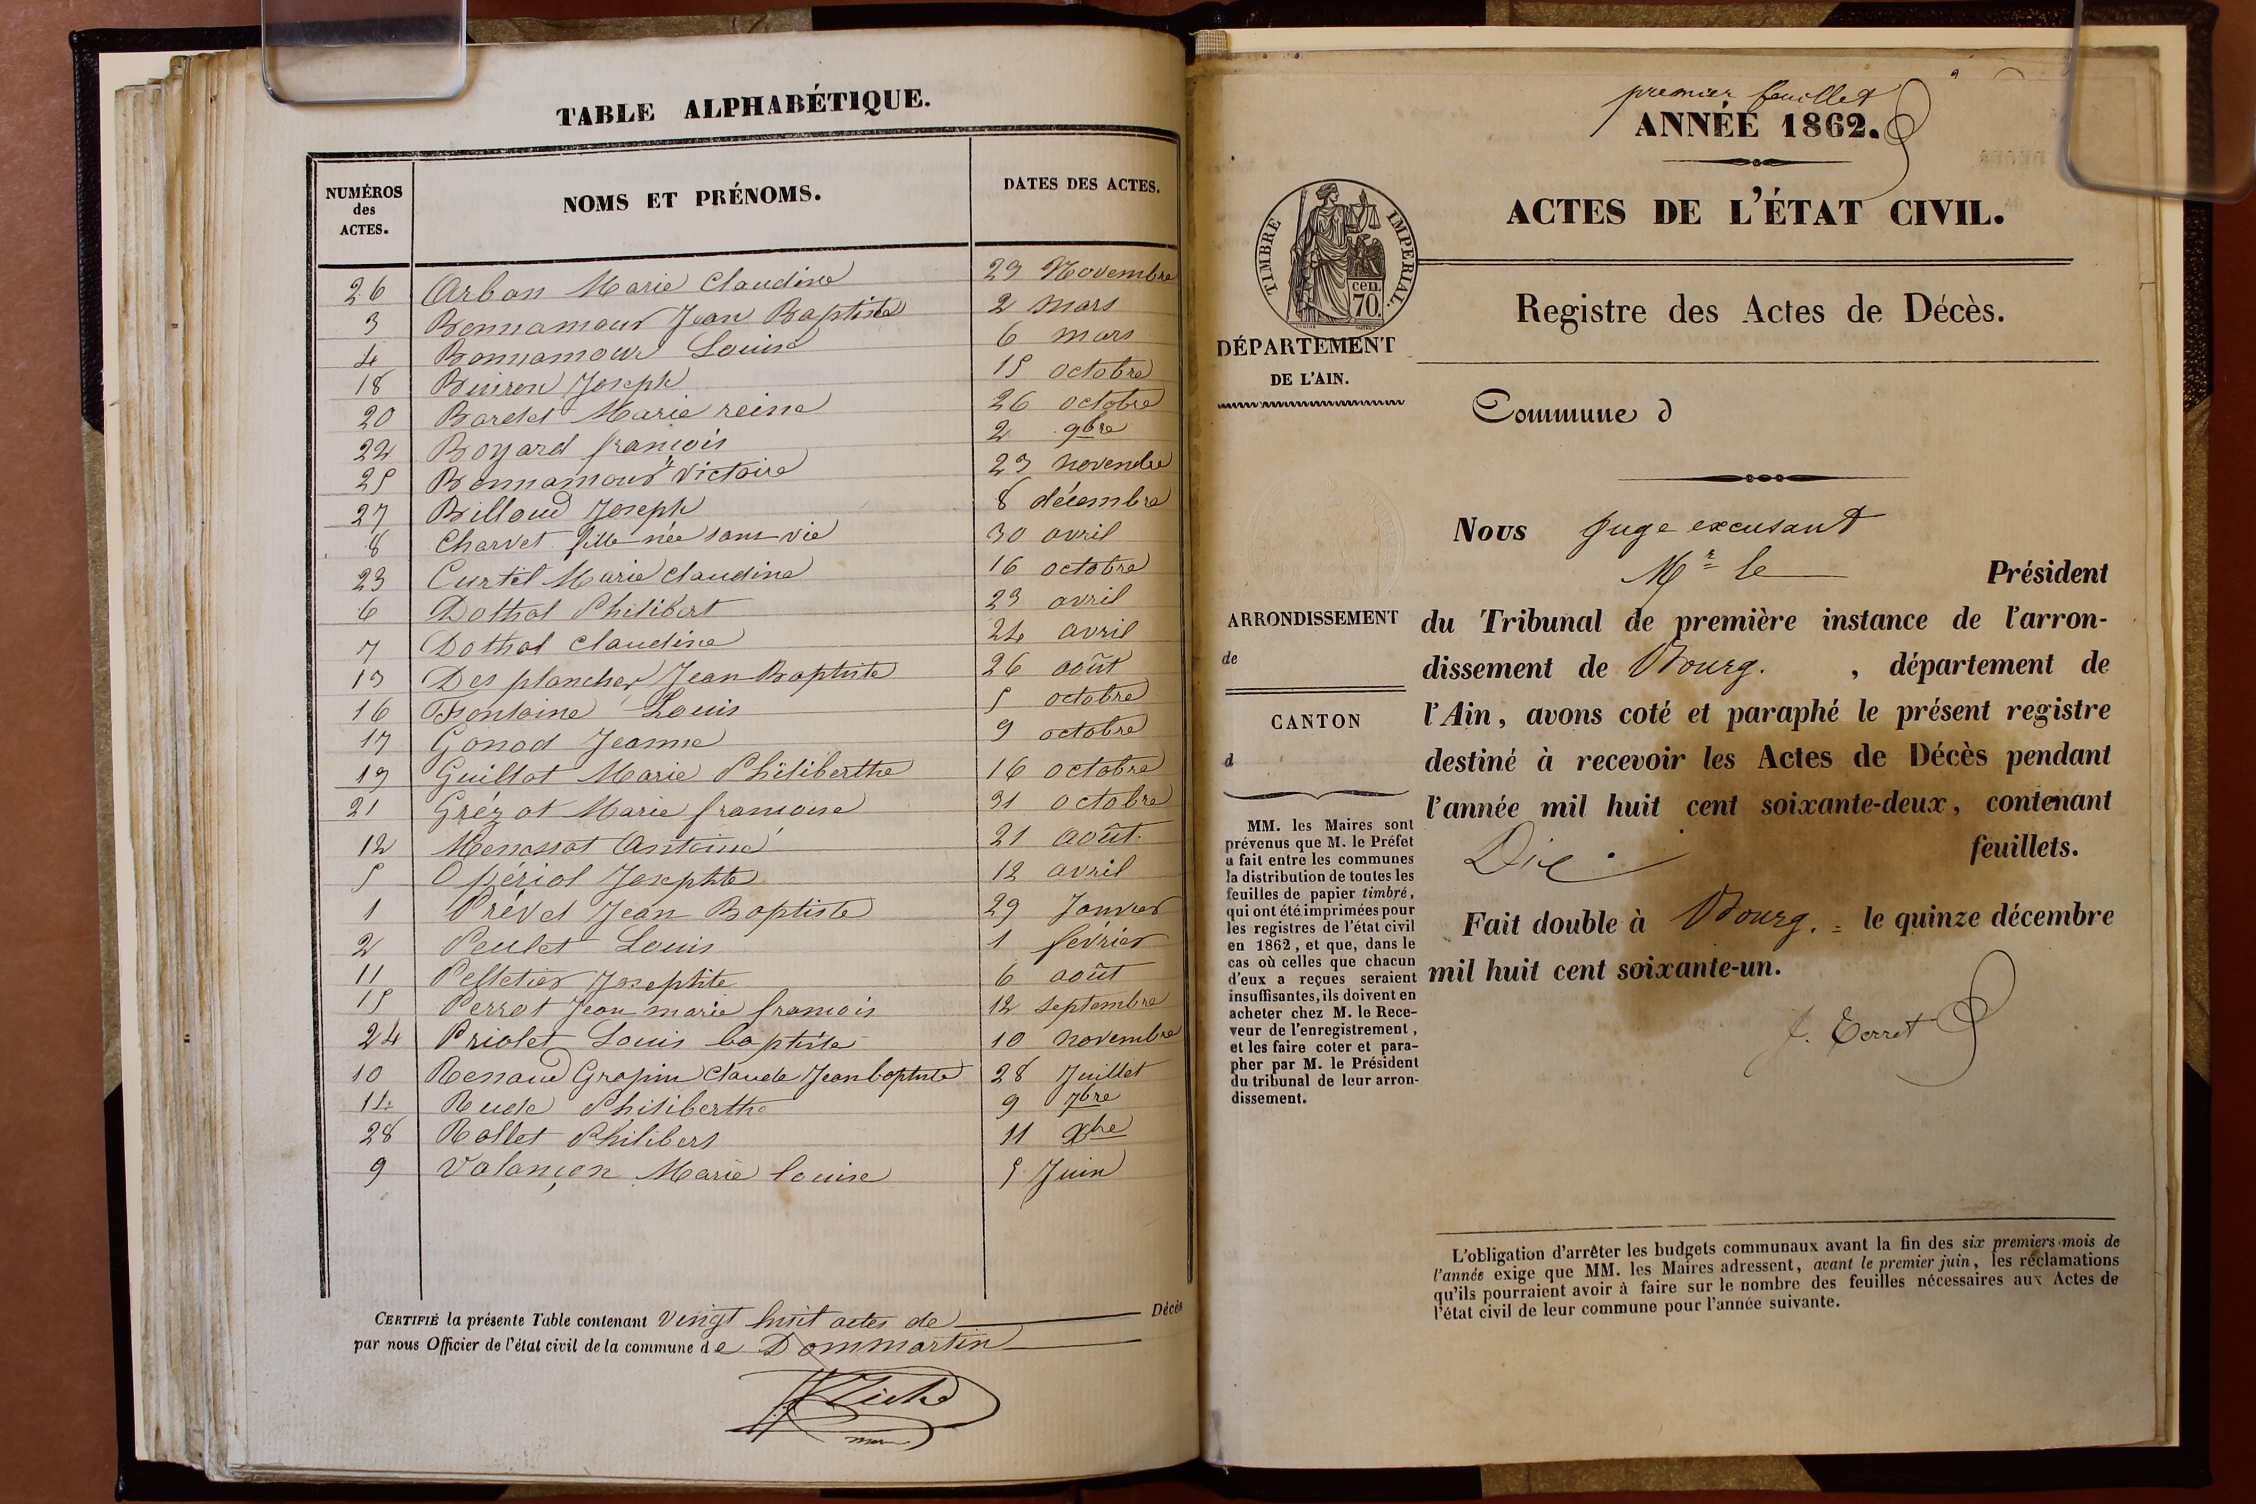 TABLE ALPHABÉTIQUE.
NUMÉROS des ACTES. NOMS ET PRÉNOMS. DATES DES ACTES.
26 Arban Marie Claudine 29 Novembre
3 Bonnamour Jean Baptiste 2 mars
4 Bonnamour Louise 6 mars
18 Buiron Joseph 15 octobre
20 Bardet Marie reine 26 octobre
22 Boyard françois 2 9bre
25 Bonnamour Victoire 23 novembre
27 Billoud Joseph 8 décembre
8 Charvet fille née sans vie 30 avril
23 Curtil Marie Claudine 16 octobre
6 Dothal Philibert 23 avril
7 Dothal Claudine 24 avril
13 Des plancher Jean Baptiste 26 août
16 Fontaine Louis 5 octobre
17 Gonod Jeanne 9 octobre
19 Guillot Marie Philiberthe 16 octobre
21 Grézot Marie francoise 31 octobre
12 Menassat Antoine 21 août.
5 Opériol Josephte 12 avril
1 Prévet Jean Baptiste 29 Janvier
2 Peulet Louis 1 février
11 Pelletier Josephte 6 août
15 Perrot Jean marie francois 12 septembre
24 Priolet Louis baptiste 10 novembre
10 Renaud Grapin Claude Jean baptiste 28 Juillet
14 Rude Philiberthe 9 7bre
28 Rollet Philibert 11 Xbre
9 Valançon Marie louise 5 Juin
CERTIFIÉ la présente Table contenant Vingt huit actes de Décès
par nous Officier de l'état civil de la commune de Dommartin
premier feuillet
ANNÉE 1862.
ACTES DE L'ÉTAT CIVIL.
TIMBRE IMPERIAL.
cen.
70.
Registre des Actes de Décès.
DÉPARTEMENT
DE L'AIN.
Commune d
Nous Juge excusant
Mr le Président
ARRONDISSEMENT
de
du Tribunal de première instance de l'arron-
dissement de Bourg. , département de
l'Ain, avons coté et paraphé le présent registre
destiné à recevoir les Actes de Décès pendant
l'année mil huit cent soixante-deux, contenant
Dix feuillets.
CANTON
d
MM. les Maires sont
prévenus que M. le Préfet
a fait entre les communes
la distribution de toutes les
feuilles de papier timbré,
qui ont été imprimées pour
les registres de l'état civil
en 1862, et que, dans le
cas où celles que chacun
d'eux a reçues seraient
insuffisantes, ils doivent en
acheter chez M. le Rece-
veur de l'enregistrement,
et les faire coter et para-
pher par M. le Président
du tribunal de leur arron-
dissement.
Fait double à Bourg. le quinze décembre
mil huit cent soixante-un.
J. Terret
L'obligation d'arrêter les budgets communaux avant la fin des six premiers mois de
l'année exige que MM. les Maires adressent, avant le premier juin, les réclamations
qu'ils pourraient avoir à faire sur le nombre des feuilles nécessaires aux Actes de
l'état civil de leur commune pour l'année suivante.